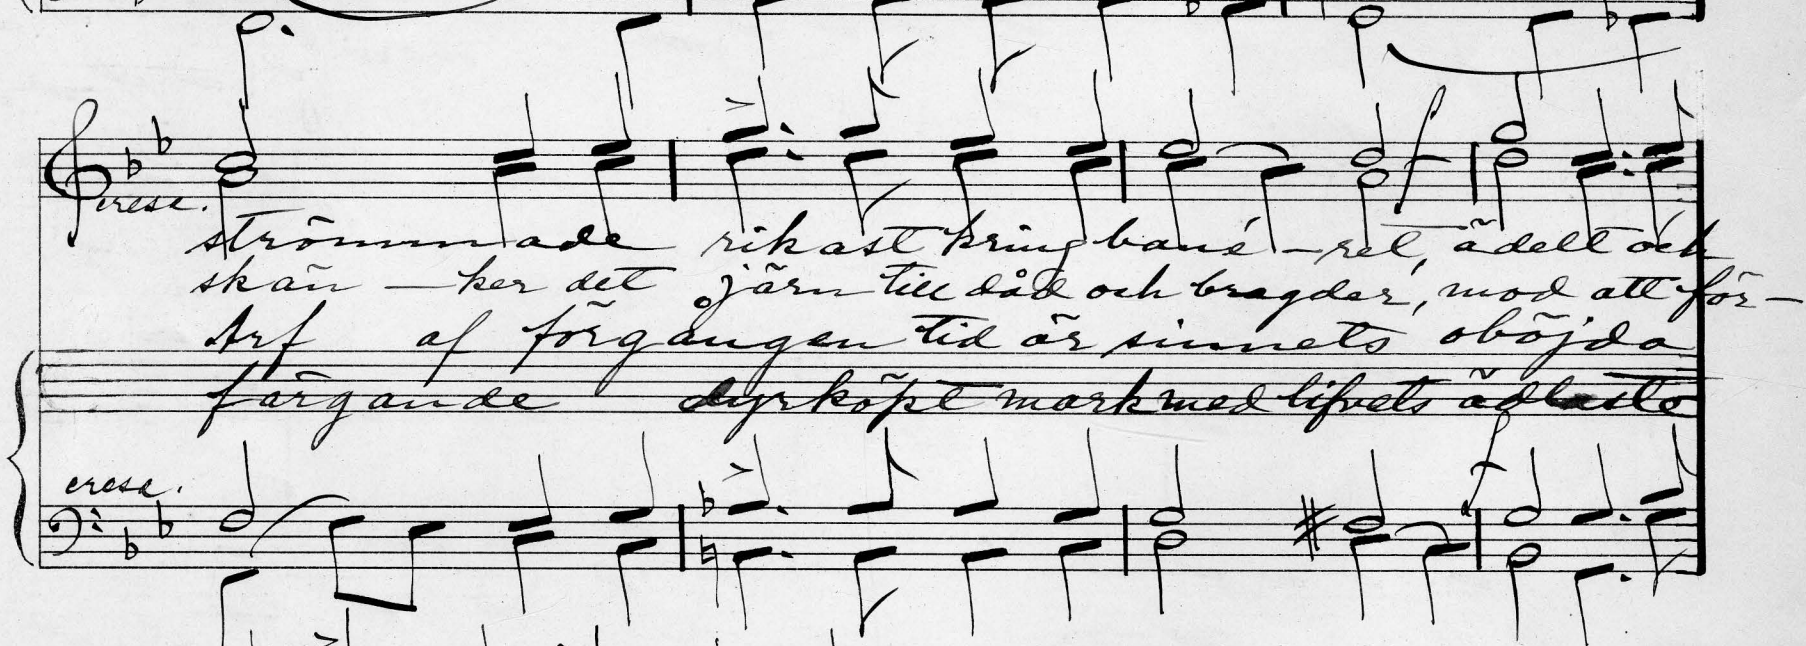 cresc.
strömmade rikast kring bané-ret, ädelt och
skän-ker det järn till dåd och bragder, mod att för-
Arf af förgången tid är sinnets oböjda
färgande dyrköpt mark med lifvets ädlaste
cresc.